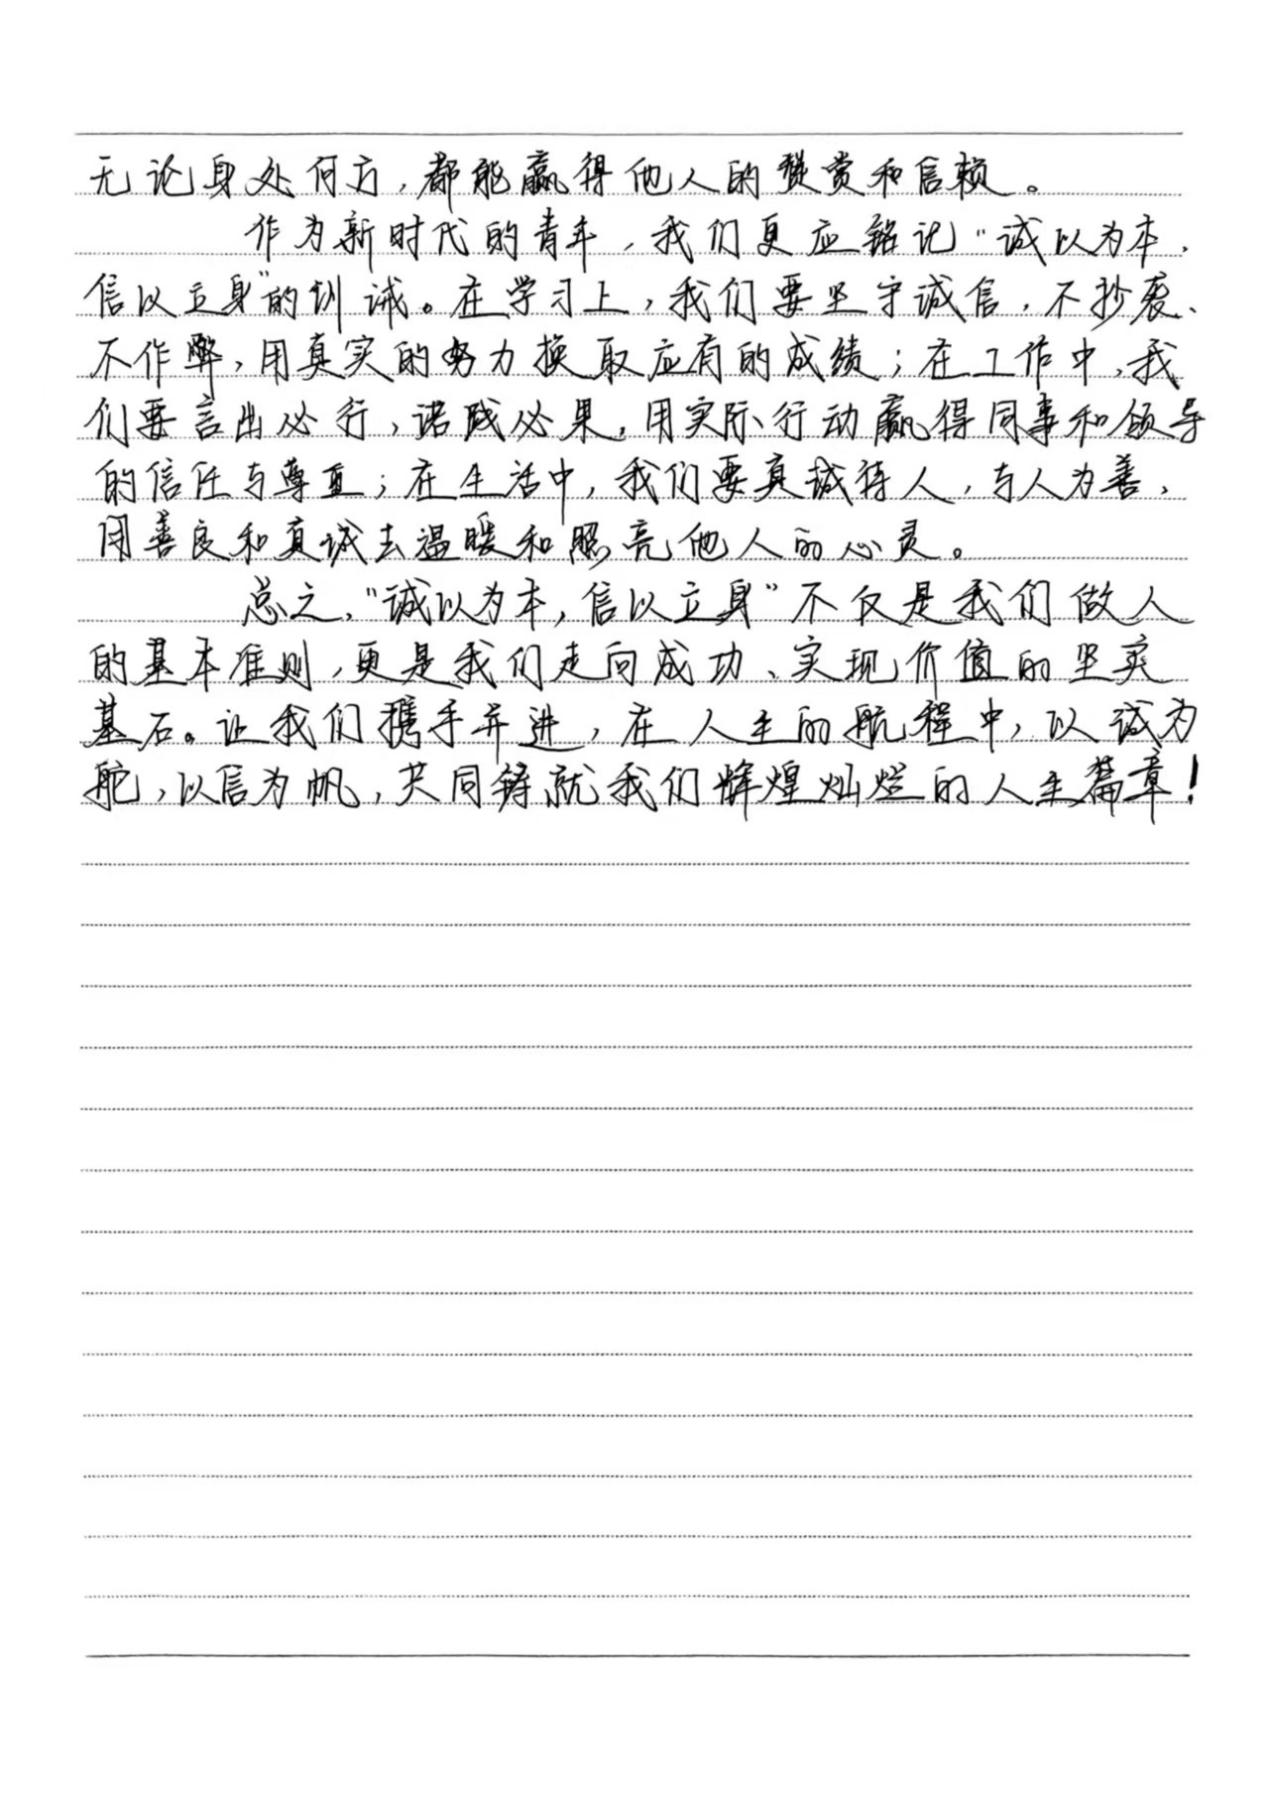 无论身处何方，都能赢得他人的赞赏和信赖。
作为新时代的青年，我们更应铭记“诚以为本，
信以立身”的训诫。在学习上，我们要坚守诚信，不抄袭、
不作弊，用真实的努力换取应有的成绩；在工作中，我
们要言出必行，诺践必果，用实际行动赢得同事和领导
的信任与尊重；在生活中，我们要真诚待人，与人为善，
用善良和真诚去温暖和照亮他人的心灵。
总之，“诚以为本，信以立身”不仅是我们做人
的基本准则，更是我们走向成功、实现价值的坚实
基石。让我们携手并进，在人生的航程中，以诚为
舵，以信为帆，共同铸就我们辉煌灿烂的人生篇章！